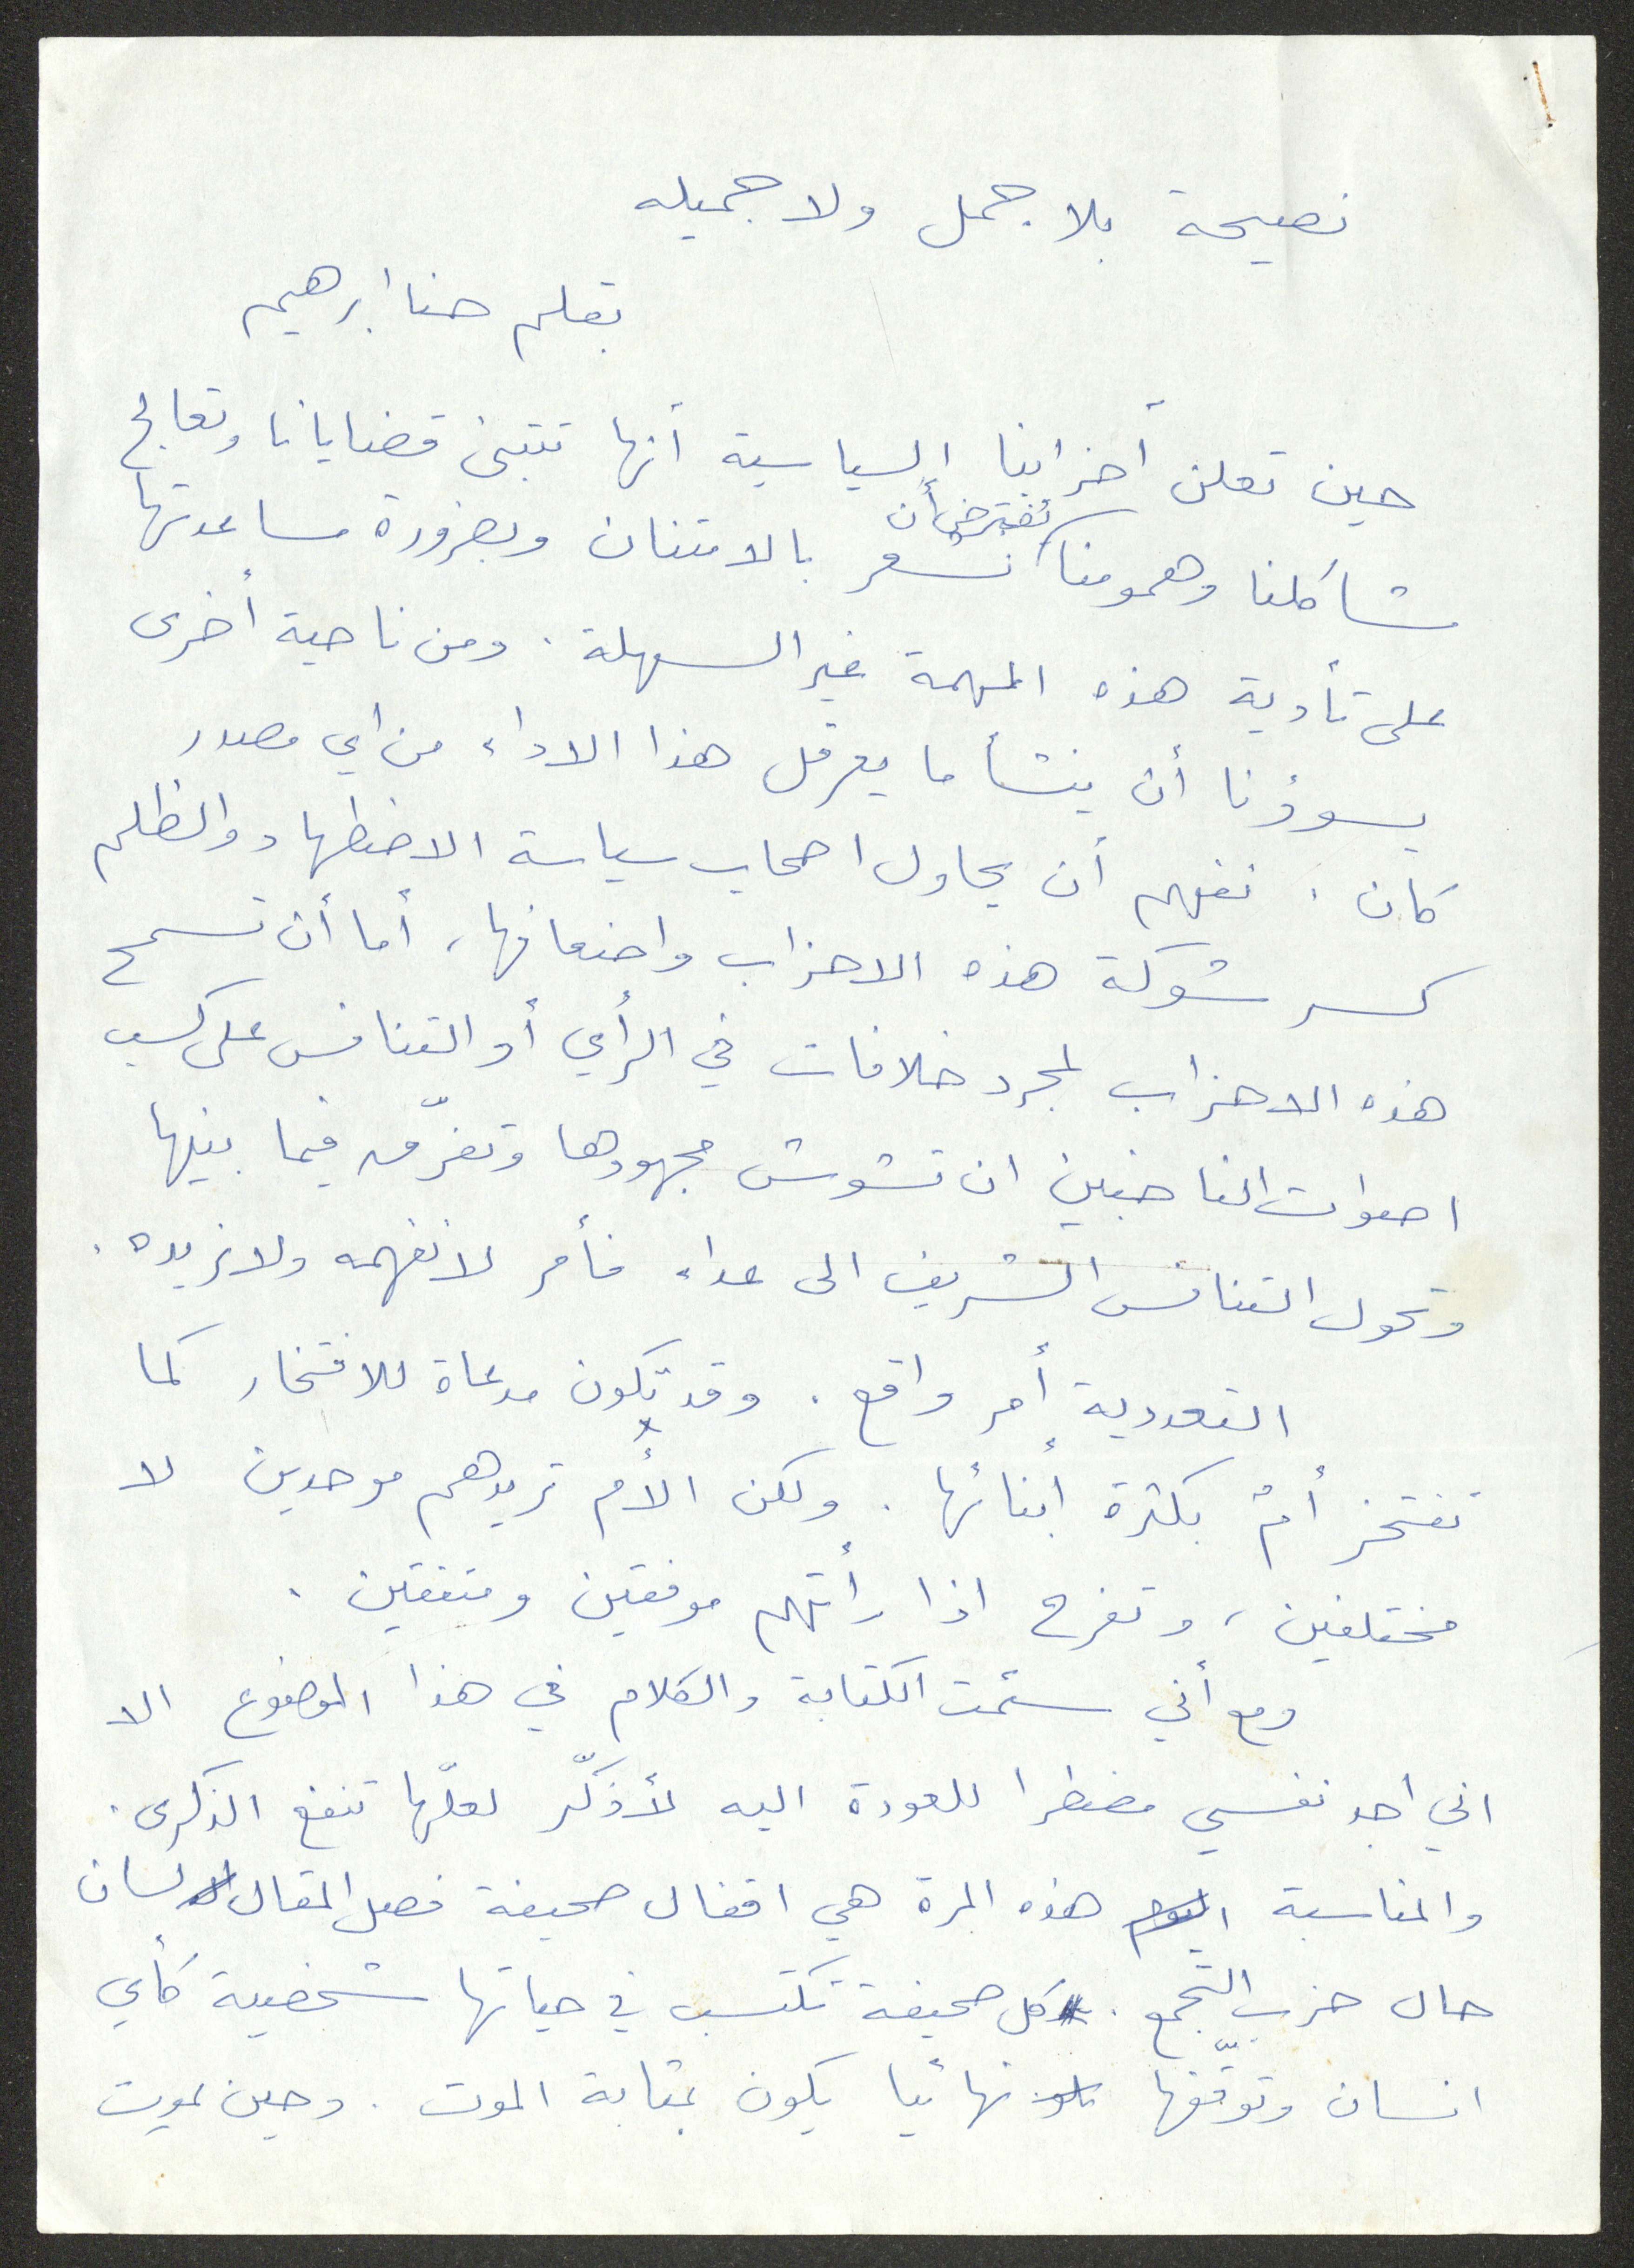 نصيحة بلا جمل ولا جميله
بقلم حنا ابرهيم
حين تعلن أحزابنا السياسية أنها تتبنى قضايانا وتعالج
مشاكلنا وهمومنا نفترض أن نشعر بالامتنان وبضرورة مساعدتها
على تأدية هذه المهمة غير السهلة. ومن ناحية أخرى
يسوؤنا أن ينشأ ما يعرقل هذا الاداء من اي مصدر
كان. نفهم أن يحاول اصحاب سياسة الاضطهاد والظلم
كسر شوكة هذه الاحزاب واضعافها، أما أن تسمح
هذه الاحزاب لمجرد خلافات في الرأي أو التنافس على كسب
اصوات الناخبين ان تشوش مجهودها وتفرّق فيما بينها
وتحول التنافس الشريف الى عداء فأمر لا نفهمه ولا نريده.
التعددية أمر واقع. وقد تكون مدعاة للافتخار كما
تفتخر أمٌ بكثرة أبنائها. ولكن الأم تريدهم موحدين لا
مختلفين، وتفرح اذا رأتهم موفقين ومتفقين.
ومع أني سئمت الكتابة والكلام في هذا الموضوع الا
اني اجد نفسي مضطرا للعودة اليه لأذكّر لعلّها تنفع الذكرى.
والمناسبة هذه المرة هي اقفال صحيفة فصل المقال لسان
حال حزب التجمع. كل صحيفة تكتسب في حياتها شخصية كأي
انسان وتوقّفها نهائيا يكون بمثابة الموت. وحين يموت